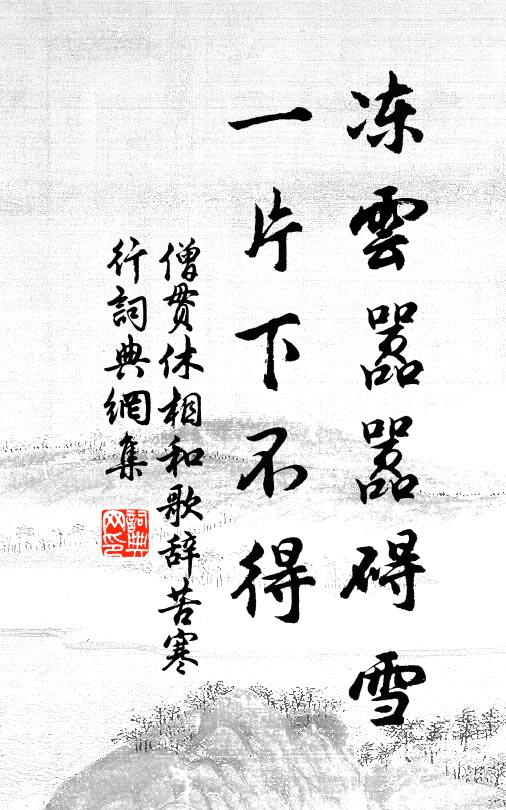 冻雲嚣嚣碍雪
一片下不得
僧贯休相和歌辞苦寒
行詞典網集
詞典
网印